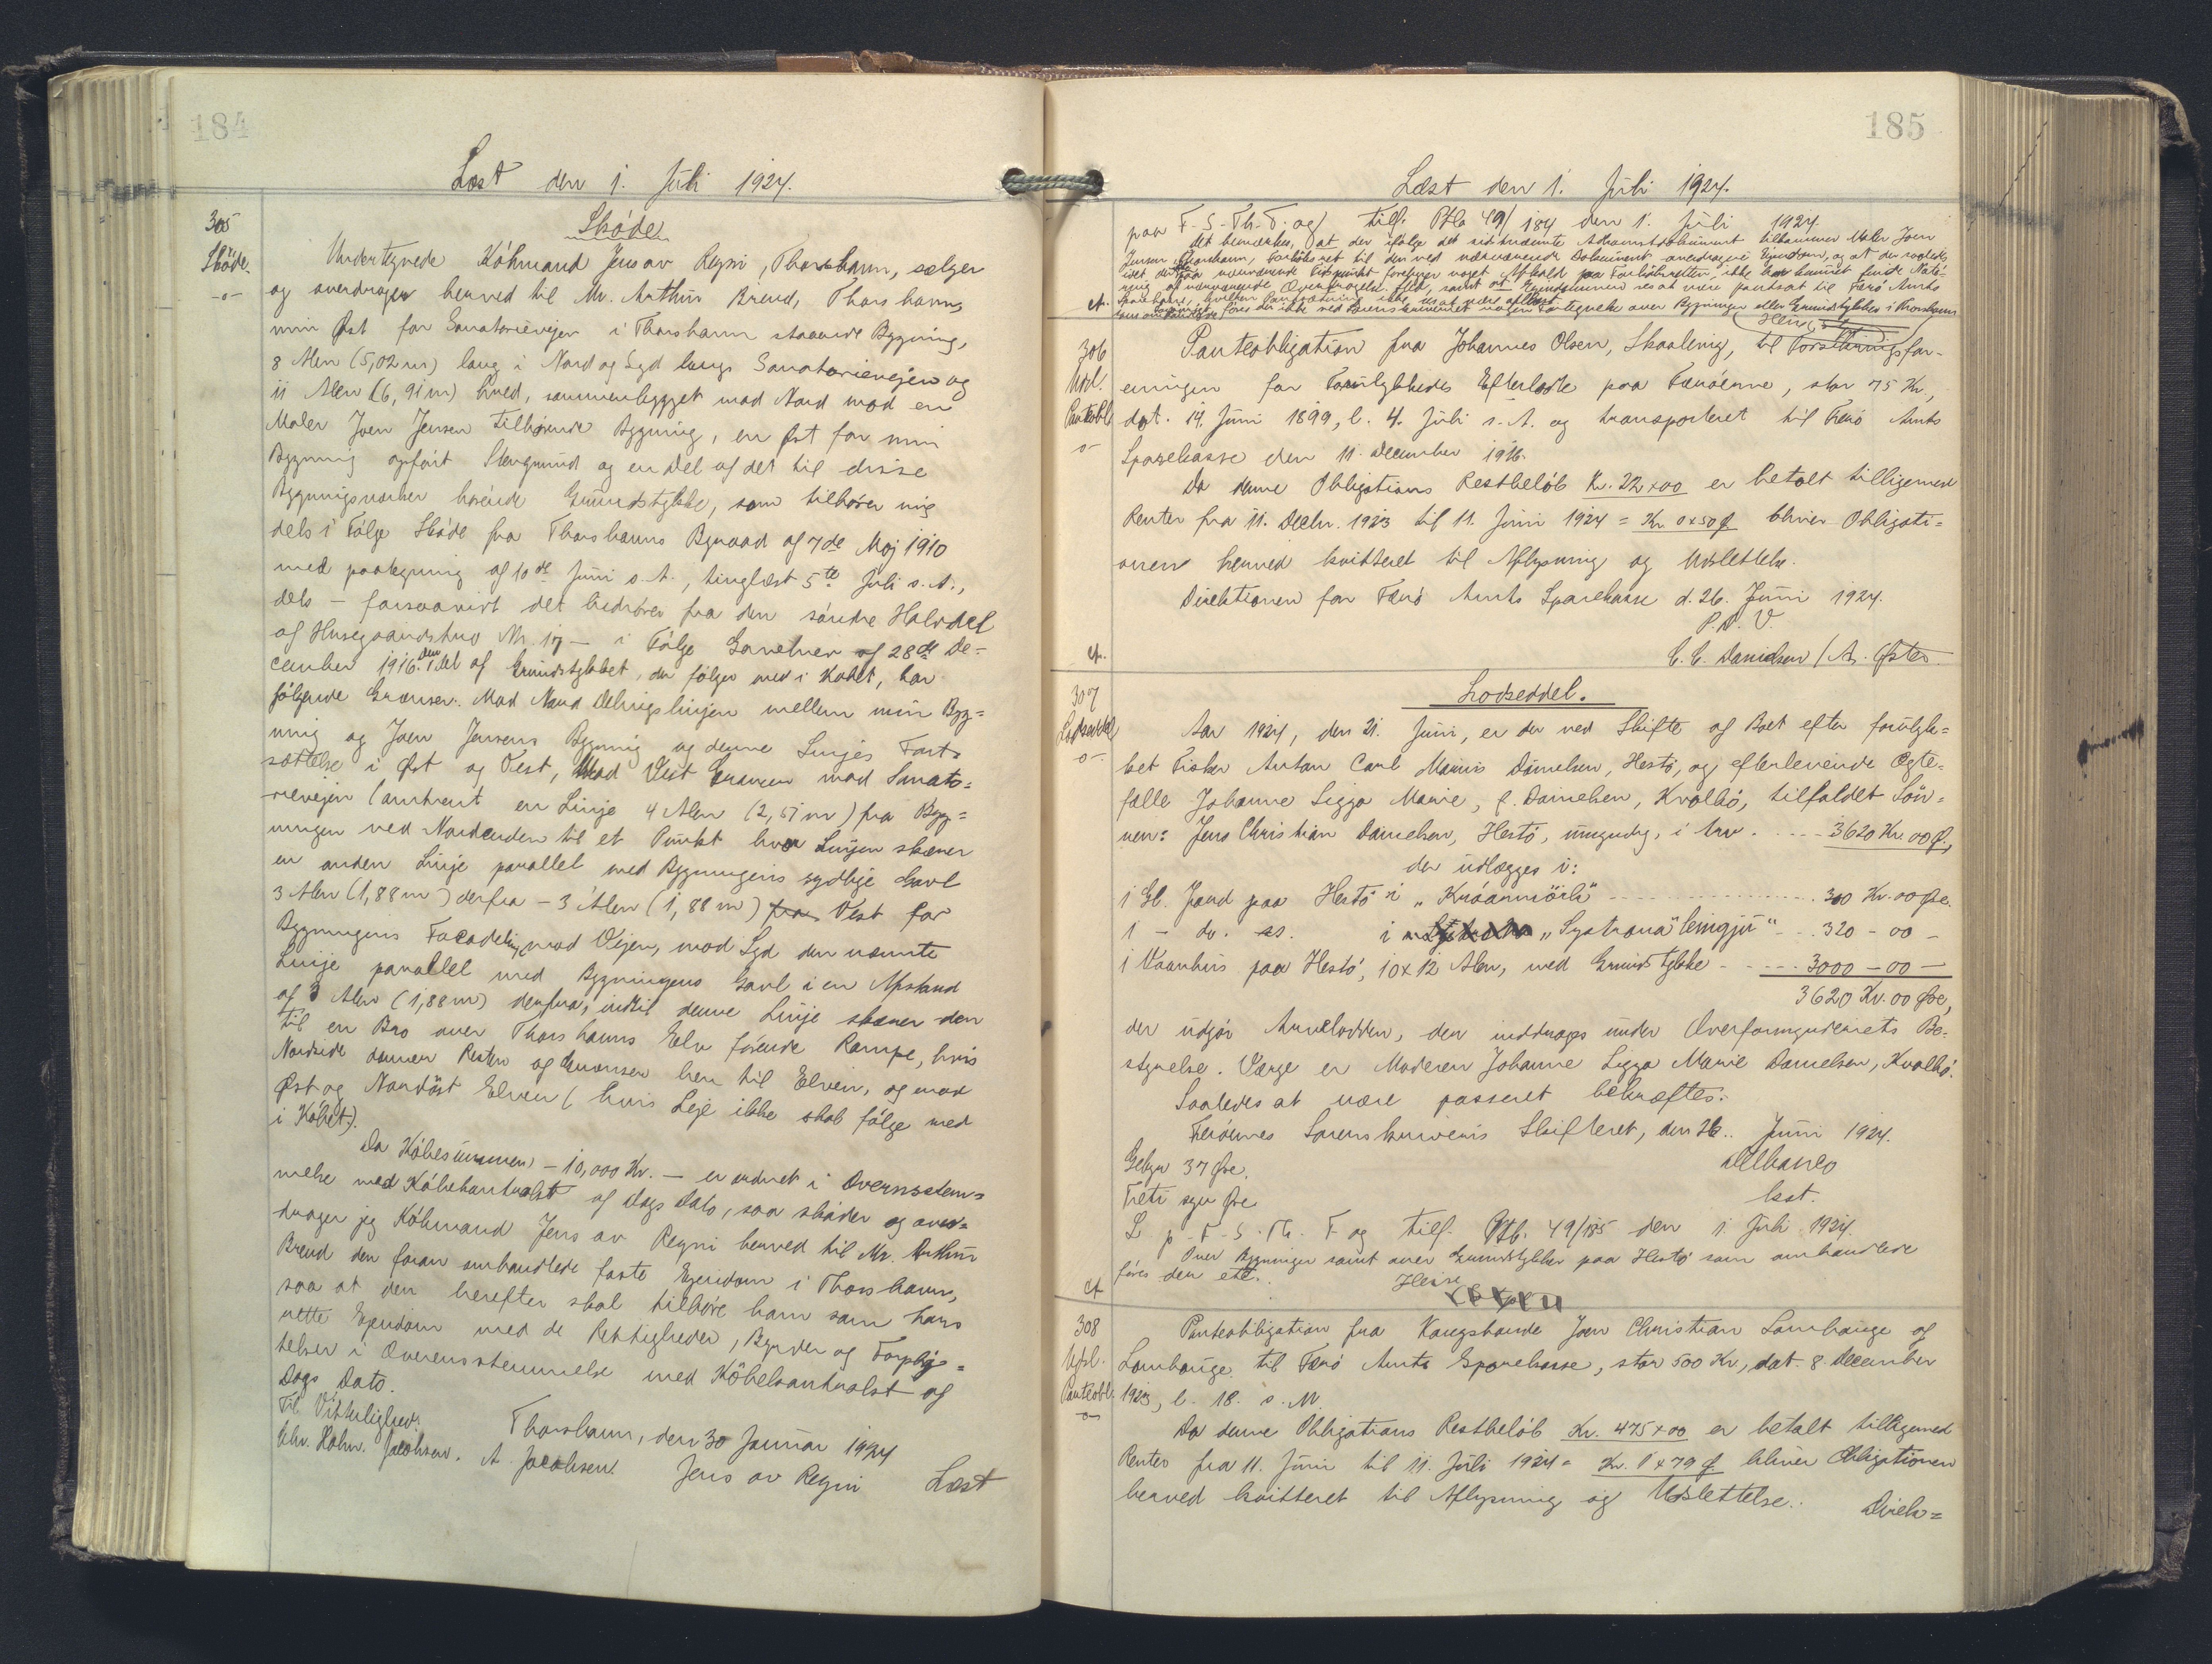 184
Læst den 1. Juli 1924.
305
Sköde.
-o-
Sköde
Undertegnede Köbmand Jens av Reyni, Thorshavn, sælger
og overdrager herved til Mr. Arthur Brend, Thorshavn,
min Øst for Sanatorievejen i Thorshavn staaende Bygning,
8 Alen (5,02 m) lang i Nord og Syd langs Sanatorievejen og
11 Alen (6,91 m) bred, sammenbygget mod Nord mod en
Maler Joen Jensen tilhörende Bygning, en Øst for min
Bygning opfört Stengrund og en Del af det til disse
Bygningsværker hörende Grundstykke, som tilhörer mig
dels i Fölge Sköde fra Thorshavns Byraad af 7de Maj 1910
med paategning af 10de Juni s. A., tinglæst 5te Juli s. A.,
dels - forsaavidt det hidrörer fra den söndre Halvdel
af Husegaardstuo Nr. 17 - i Fölge Gavebrev af 28de De-
cember 1916. Den Del af Grundstykket, der fölger med i Köbet, har
fölgende Grænser. Mod Nord Delingslinjen mellem min Byg=
ning og Joen Jensens Bygning og denne Linjes Fort=
sættelse i Øst og Vest, Mod Vest Grænsen mod Sanato=
rievejen (omtrent en Linje 4 Alen (2,51 m) fra Byg=
ningen ved Nordenden til et Punkt hvor Linjen skærer
en anden Linje parallel med Bygningens sydlige Gavl
3 Alen (1,88 m) derfra - 3 Alen (1,88 m) fra Vest for
Bygningens Facadelinje mod Vejen, mod Syd den nævnte
Linje parallel med Bygningens Gavl i en Afstand
af 3 Alen (1,88 m) derfra, indtil denne Linje skærer den
til en Bro over Thorshavns Elv förende Rampe, hvis
Nordside danner Resten af Grænsen hen til Elven, og mod
Øst og Nordöst Elven (hvis Leje ikke skal fölge med
i Köbet).
Da Köbesummen - 10,000 Kr. - er ordnet i Overensstem=
melse med Köbekontrakt af Dags Dato, saa sköder og over=
drager jeg Köbmand Jens av Reyni herved til Mr. Arthur
Brend den foran omhandlede faste Ejendom i Thorshavn,
saa at den herefter skal tilhöre ham som hans
rette Ejendom med de Rettigheder, Byrder og Forplig=
telser i Overensstemmelse med Köbekontrakt af
Dags Dato.
Thorshavn, den 30 Januar 1924
Til Vitterlighed:
Chr. Holm. Jacobsen. A. Jacobsen. Jens av Reyni Læst
185
Læst den 1. Juli 1924.
paa F-S-Th-T. og tilf. Ptb 49/184 den 1. Juli 1924.
Det bemærkes, at der ifölge det sidstnævnte Adkomstdokument tilkommer Maler Joen
Jensen, Thorshavn, Forköbsret til den ved nærværende Dokument overdragne Ejendom, og at der saaledes,
Sparekasse, hvilken Pantsætning ikke ses at være aflyst.
föres der ikke ved Sorenskriveriet nogen Fortegnelse over Bygninger eller Grundstykker i Thorshavn
Ct.
306
Udsl.
Panteobl
o
Panteobligation fra Johannes Olsen, Skaaling, til Forsikringsfor-
eningen for Forulykkedes Efterladte paa Færöerne, stor 75 Kr.,
dat. 14. Juni 1899, l. 4. Juli s. A. og transporteret til Færö Amts
Sparekasse den 11. December 1916.
Da denne Obligations Restbelöb Kr. 22 x 00 er betalt tilligemed
Renter fra 11. Decbr. 1923 til 11. Juni 1924 = Kr. 0 x 50 Ø bliver Obligati=
onen herved kvitteret til Aflysning og Udslettelse.
Direktionen for Færö Amts Sparekasse d. 26. Juni 1924.
P. D. V.
C. C. Danielsen / A. Øster.
Ct.
307
Lodseddel
-o-
Lodseddel.
Aar 1924, den 21. Juni, er der ved Skifte af Boet efter forulyk=
ket Fisker Anton Carl Marius Danielsen, Hestö, og efterlevende Ægte=
fælle Johanne Sigga Marie, f. Danielsen, Kvalbö, tilfaldet Sön=
nen: Jens Christian Danielsen, Hestö, umyndig, i Arv. 3620 Kr. 00 Ø.,
der udlægges i:
1 Gl. Jord paa Hestö i 300 Kr. 00 Øre.
1 - do. ss. i 320 - 00 -
1 Vaanhus paa Hestö, 10 x 12 Alen, med Grundstykke 3000 - 00 -
3620 Kr. 00 Øre,
der udgör Arvelodden, der inddrages under Overformynderiets Be-
styrelse. Værge er Moderen Johanne Sigga Marie Danielsen, Kvalbö.
Saaledes at være passeret bekræftes.
Færöernes Sorenskriveris Skifteret, den 26. Juni 1924.
Gebyr 37 Øre.
Treti syv Øre
kst.
L. p. F-S-Th. T og tilf. Ptb. 49/185 den 1. Juli 1924.
Over Bygninger samt over Grundstykker paa Hestö som omhandlede
föres der ett.
Ct
308
Udsl.
Panteobl.
o
Panteobligation fra Kongsbonde Joen Christian Lamhauge af
Lamhauge til Færö Amts Sparekasse, stor 500 Kr., dat. 8. December
1923, l. 18. s. M.
Da denne Obligations Restbelöb Kr. 475 x 00 er betalt tilligemed
Renter fra 11. Juni til 11. Juli 1924 = Kr. 1 x 79 Ø bliver Obligationen
herved kvitteret til Aflysning og Udslettelse. Direk=